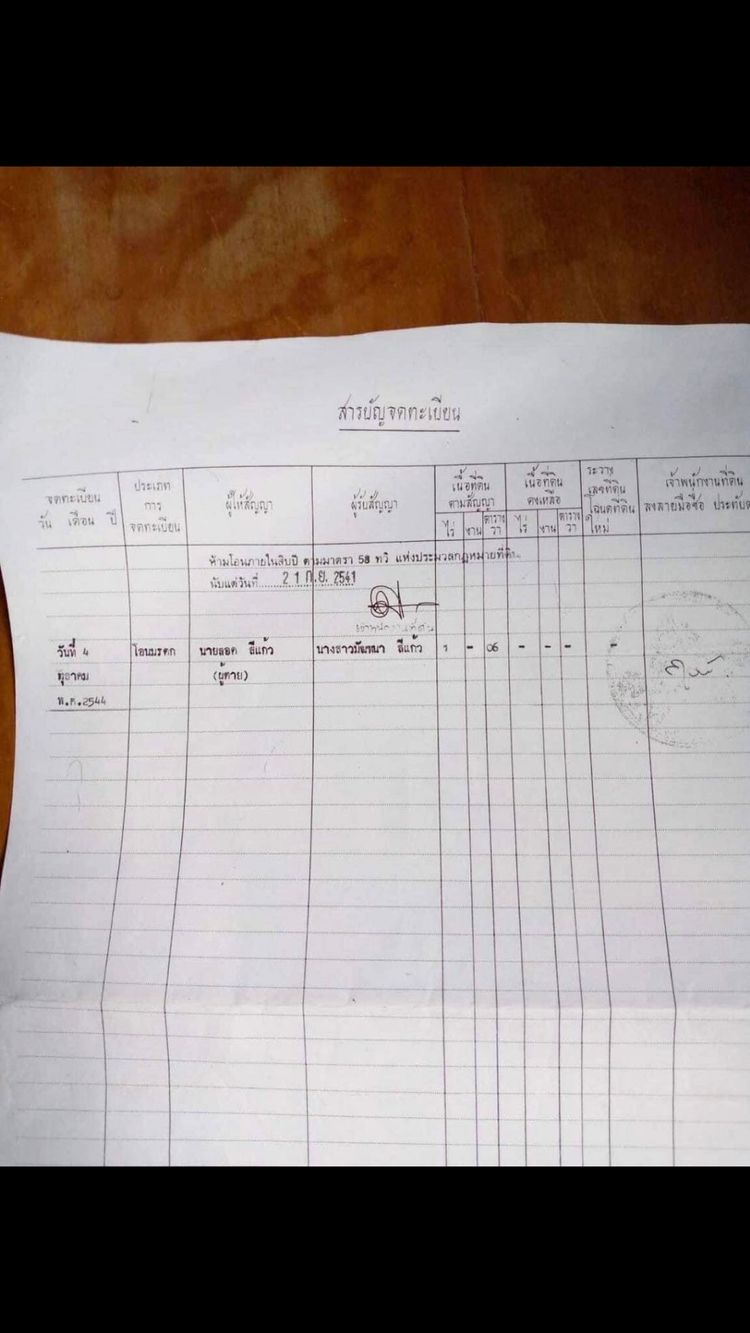 สารบัญจดทะเบียน
จดทะเบียน
วัน เดือน ปี
ประเภท
การ
จดทะเบียน
ผู้ให้สัญญา
ผู้รับสัญญา
เนื้อที่ดิน
ตามสัญญา
ไร่ งาน ตาราง
วา
เนื้อที่ดิน
คงเหลือ
ไร่ งาน ตาราง
วา
ระวาง
เลขที่ดิน
โฉนดที่ดิน
ใหม่
เจ้าพนักงานที่ดิน
ลงลายมือชื่อ ประทับ
ห้ามโอนภายในสิบปี ตามมาตรา 58 ทวิ แห่งประมวลกฎหมายที่ดิน
นับแต่วันที่ 21 ก.ย. 2541
เจ้าพนักงานที่ดิน
วันที่ 4 โอนมรดก นายลอด สีแก้ว นางสาวมัณฑนา สีแก้ว 1 - 06 - - - -
ตุลาคม (ผู้ตาย)
พ.ศ.2544